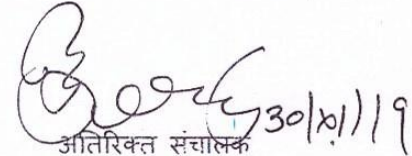 30/XI/19
अतिरिक्त संचालक